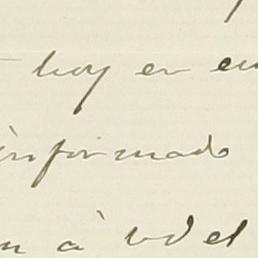 hoy en
informado
à vd el